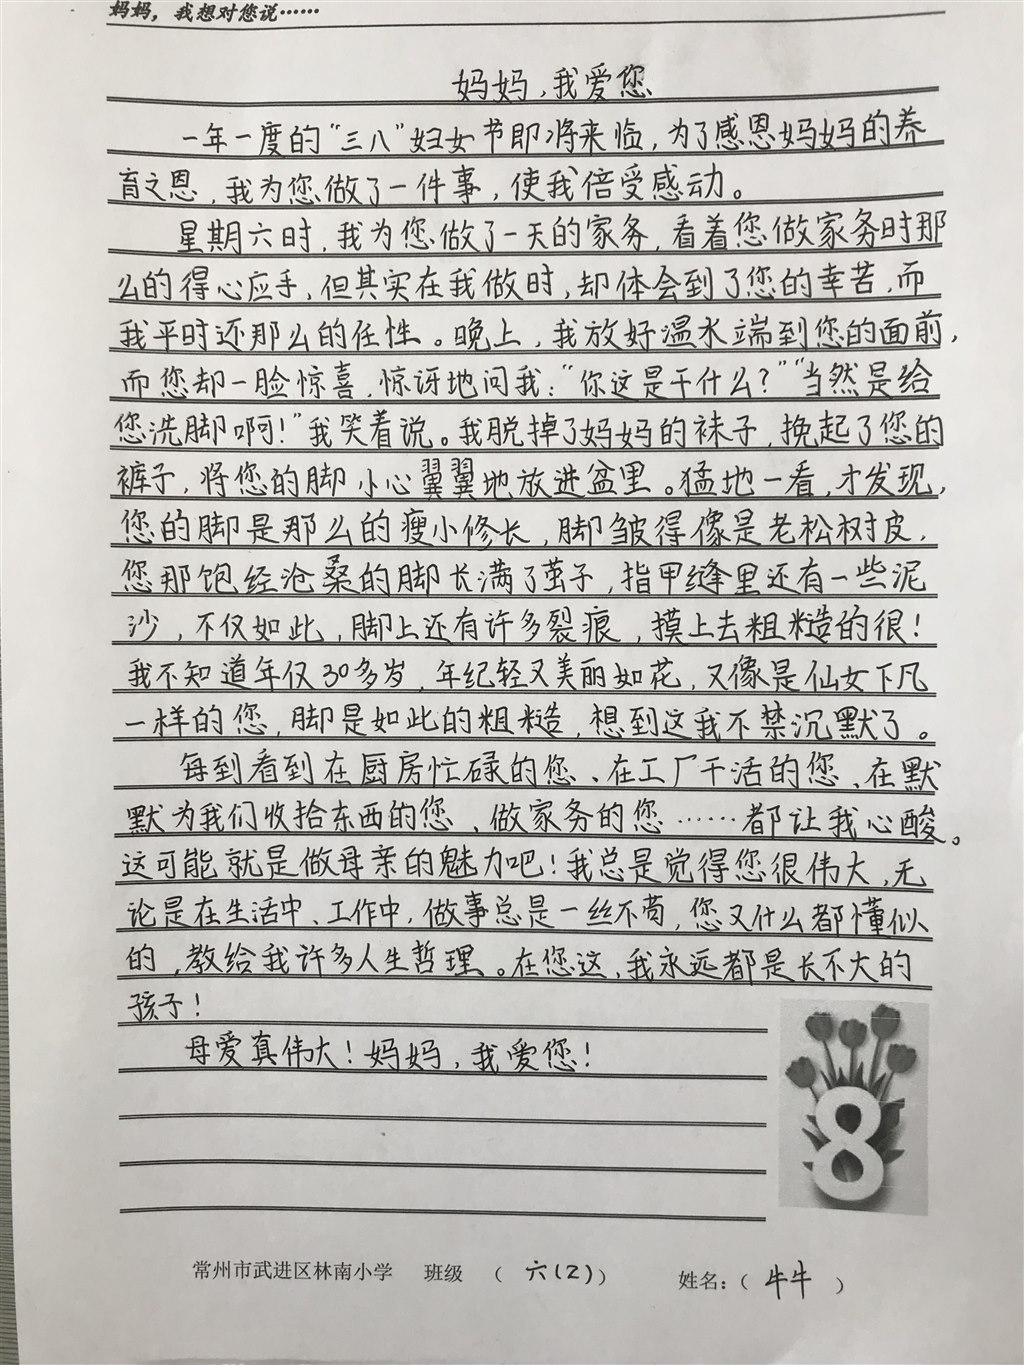 妈妈，我想对您说……
妈妈，我爱您
一年一度的“三八”妇女节即将来临，为了感恩妈妈的养
育之恩，我为您做了一件事，使我倍受感动。
星期六时，我为您做了一天的家务，看着您做家务时那
么的得心应手，但其实在我做时，却体会到了您的幸苦，而
我平时还那么的任性。晚上，我放好温水端到您的面前，
而您却一脸惊喜，惊讶地问我：“你这是干什么？”“当然是给
您洗脚啊！”我笑着说。我脱掉了妈妈的袜子，挽起了您的
裤子，将您的脚小心翼翼地放进盆里。猛地一看，才发现，
您的脚是那么的瘦小修长，脚皱得像是老松树皮，
您那饱经沧桑的脚长满了茧子，指甲缝里还有一些泥
沙，不仅如此，脚上还有许多裂痕，摸上去粗糙的很！
我不知道年仅30多岁，年纪轻又美丽如花，又像是仙女下凡
一样的您，脚是如此的粗糙，想到这我不禁沉默了。
每到看到在厨房忙碌的您、在工厂干活的您、在默
默为我们收拾东西的您、做家务的您……都让我心酸。
这可能就是做母亲的魅力吧！我总是觉得您很伟大，无
论是在生活中、工作中，做事总是一丝不苟，您又什么都懂似
的，教给我许多人生哲理。在您这，我永远都是长不大的
孩子！
母爱真伟大！妈妈，我爱您！
8
常州市武进区林南小学 班级 （六(2)） 姓名：（牛牛）